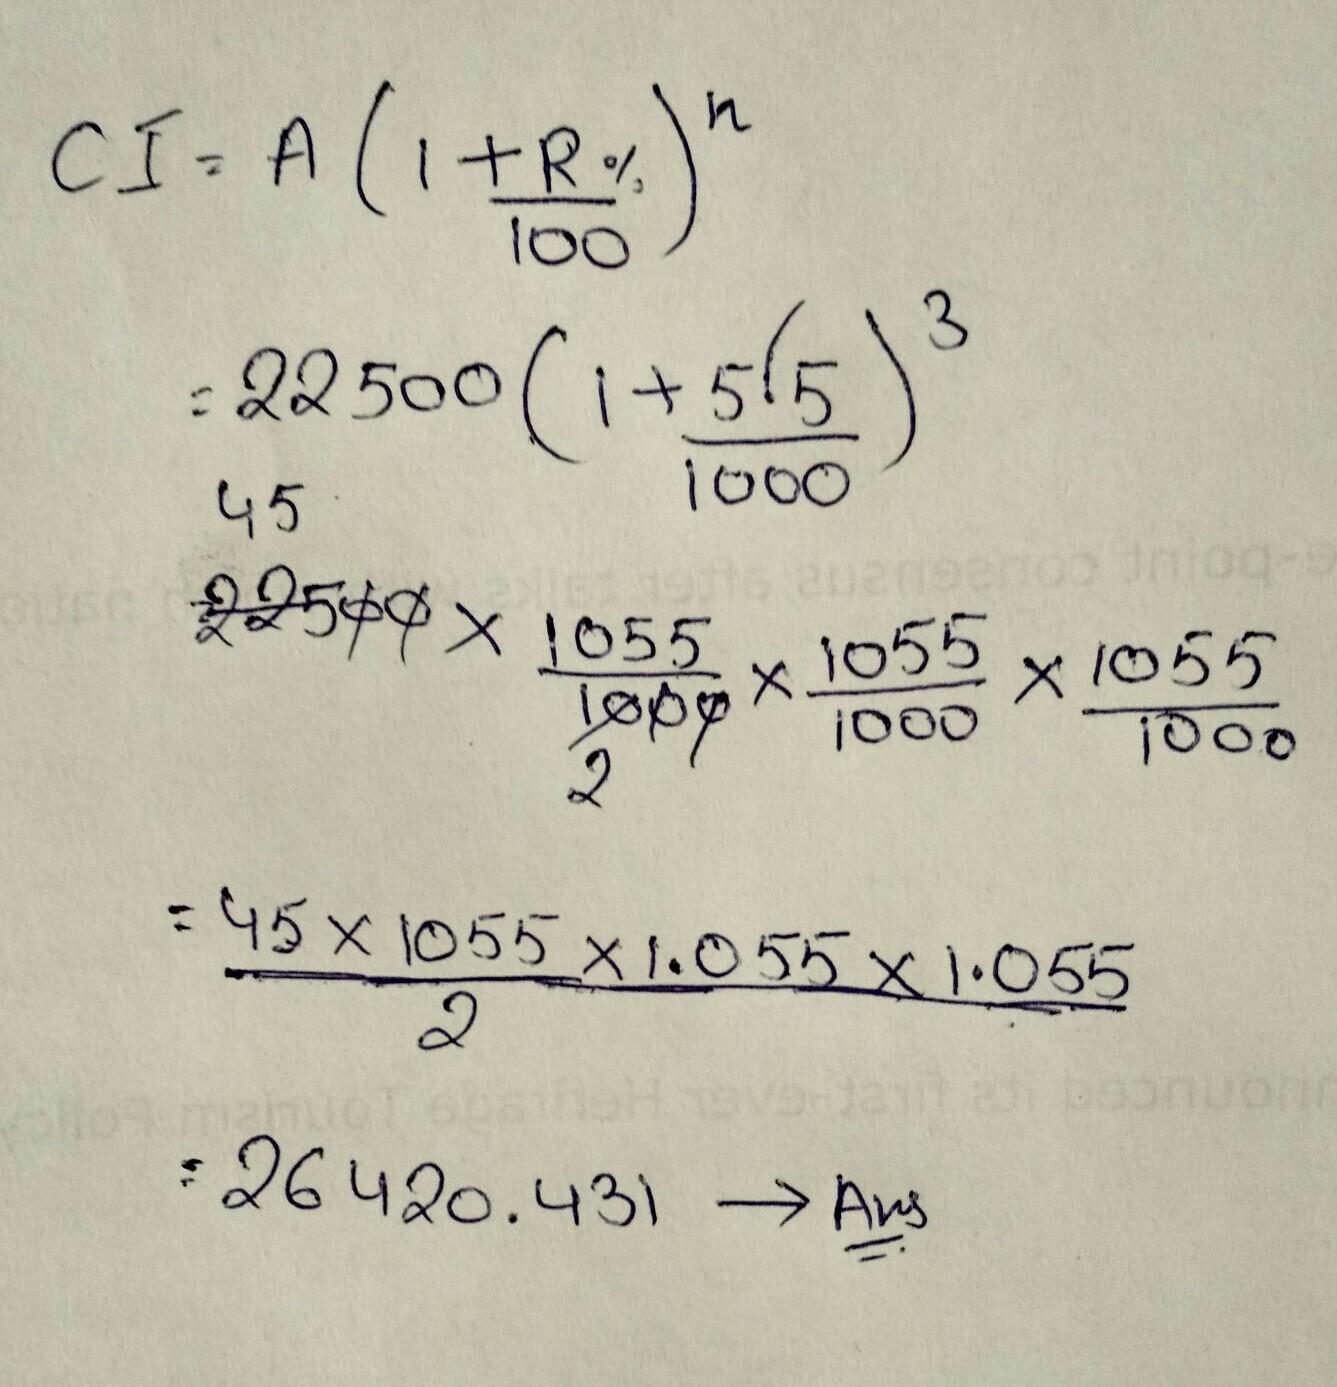 CI = A (1 + R% / 100)^n
= 22500 (1 + 5.5 / 1000)^3
45
22500 × 1055/1000 × 1055/1000 × 1055/1000
2
= 45 × 1055 × 1.055 × 1.055
2
= 26420.431 → Ans